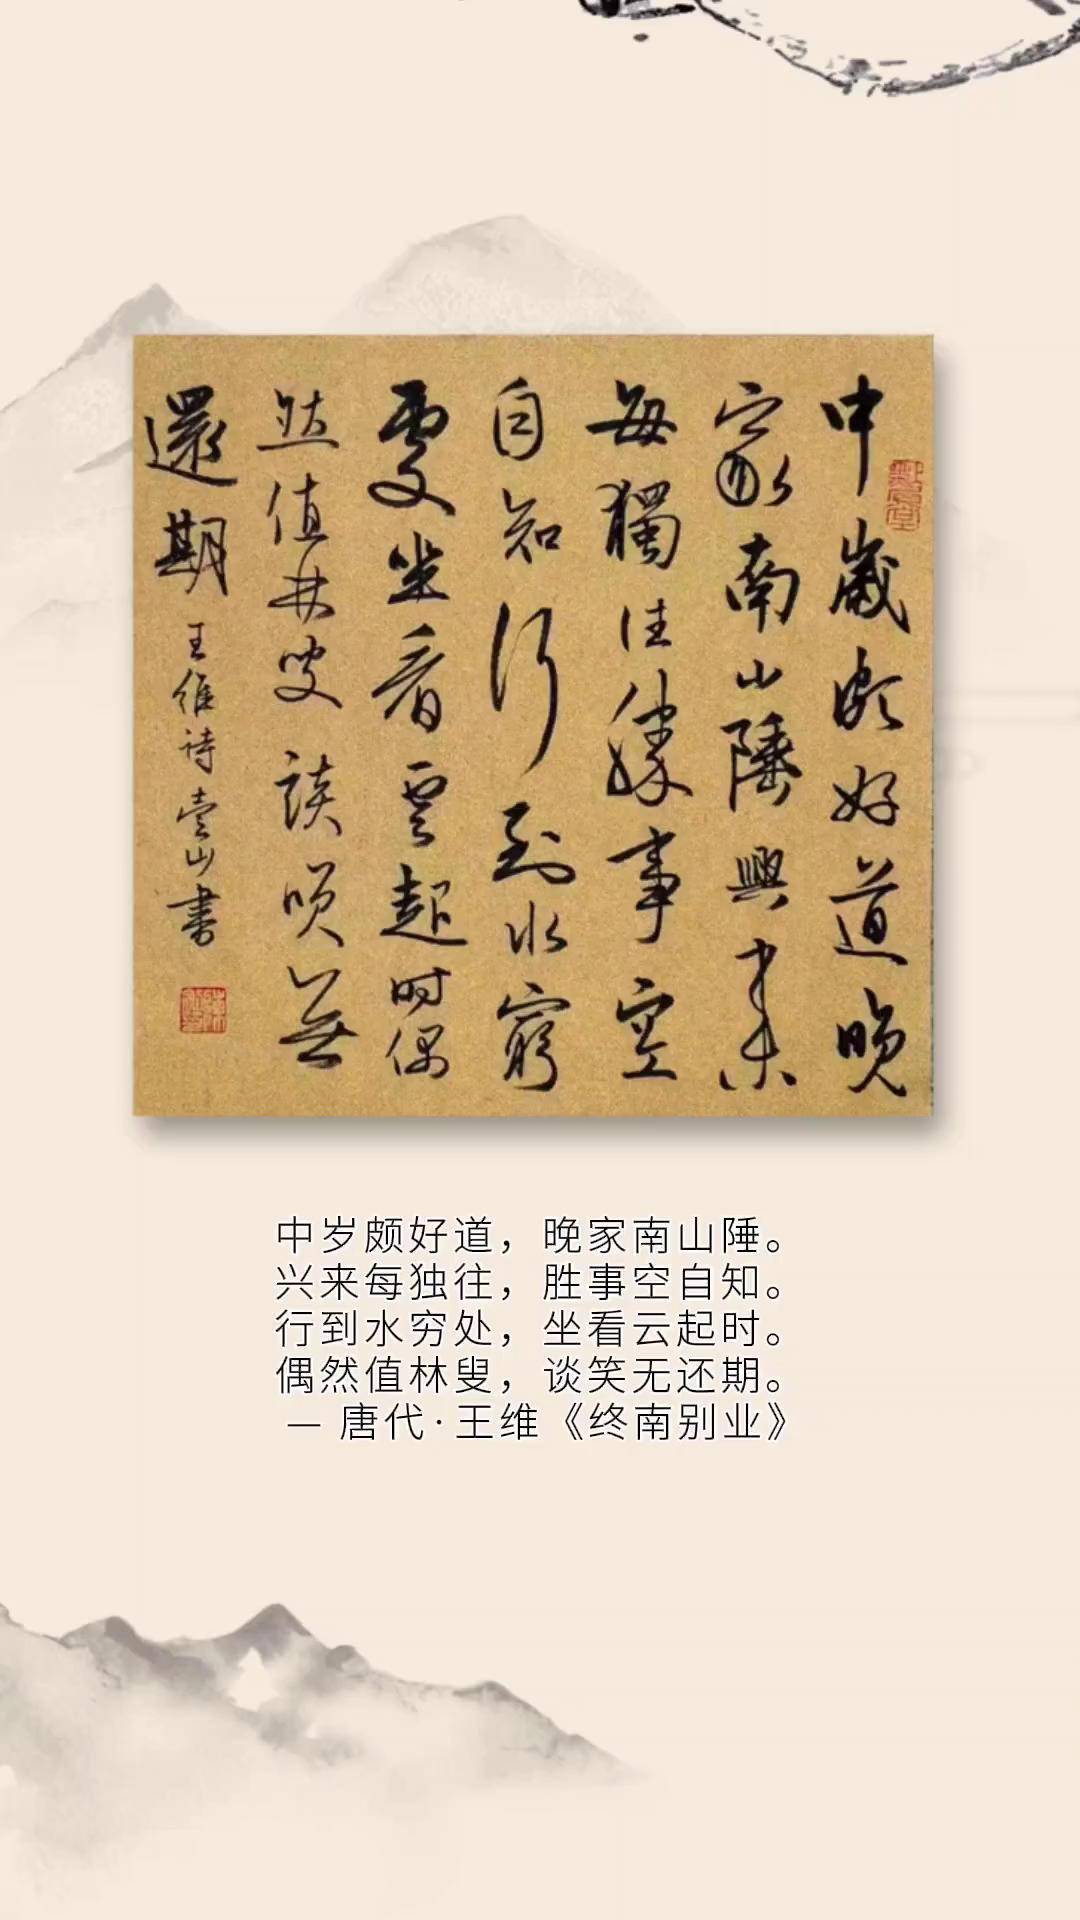 中歲頗好道晚
家南山陲興來
每獨往勝事空
自知行到水窮
處坐看雲起時偶
然值林叟談笑無
還期王維诗壹山書
中岁颇好道，晚家南山陲。
兴来每独往，胜事空自知。
行到水穷处，坐看云起时。
偶然值林叟，谈笑无还期。
— 唐代·王维《终南别业》